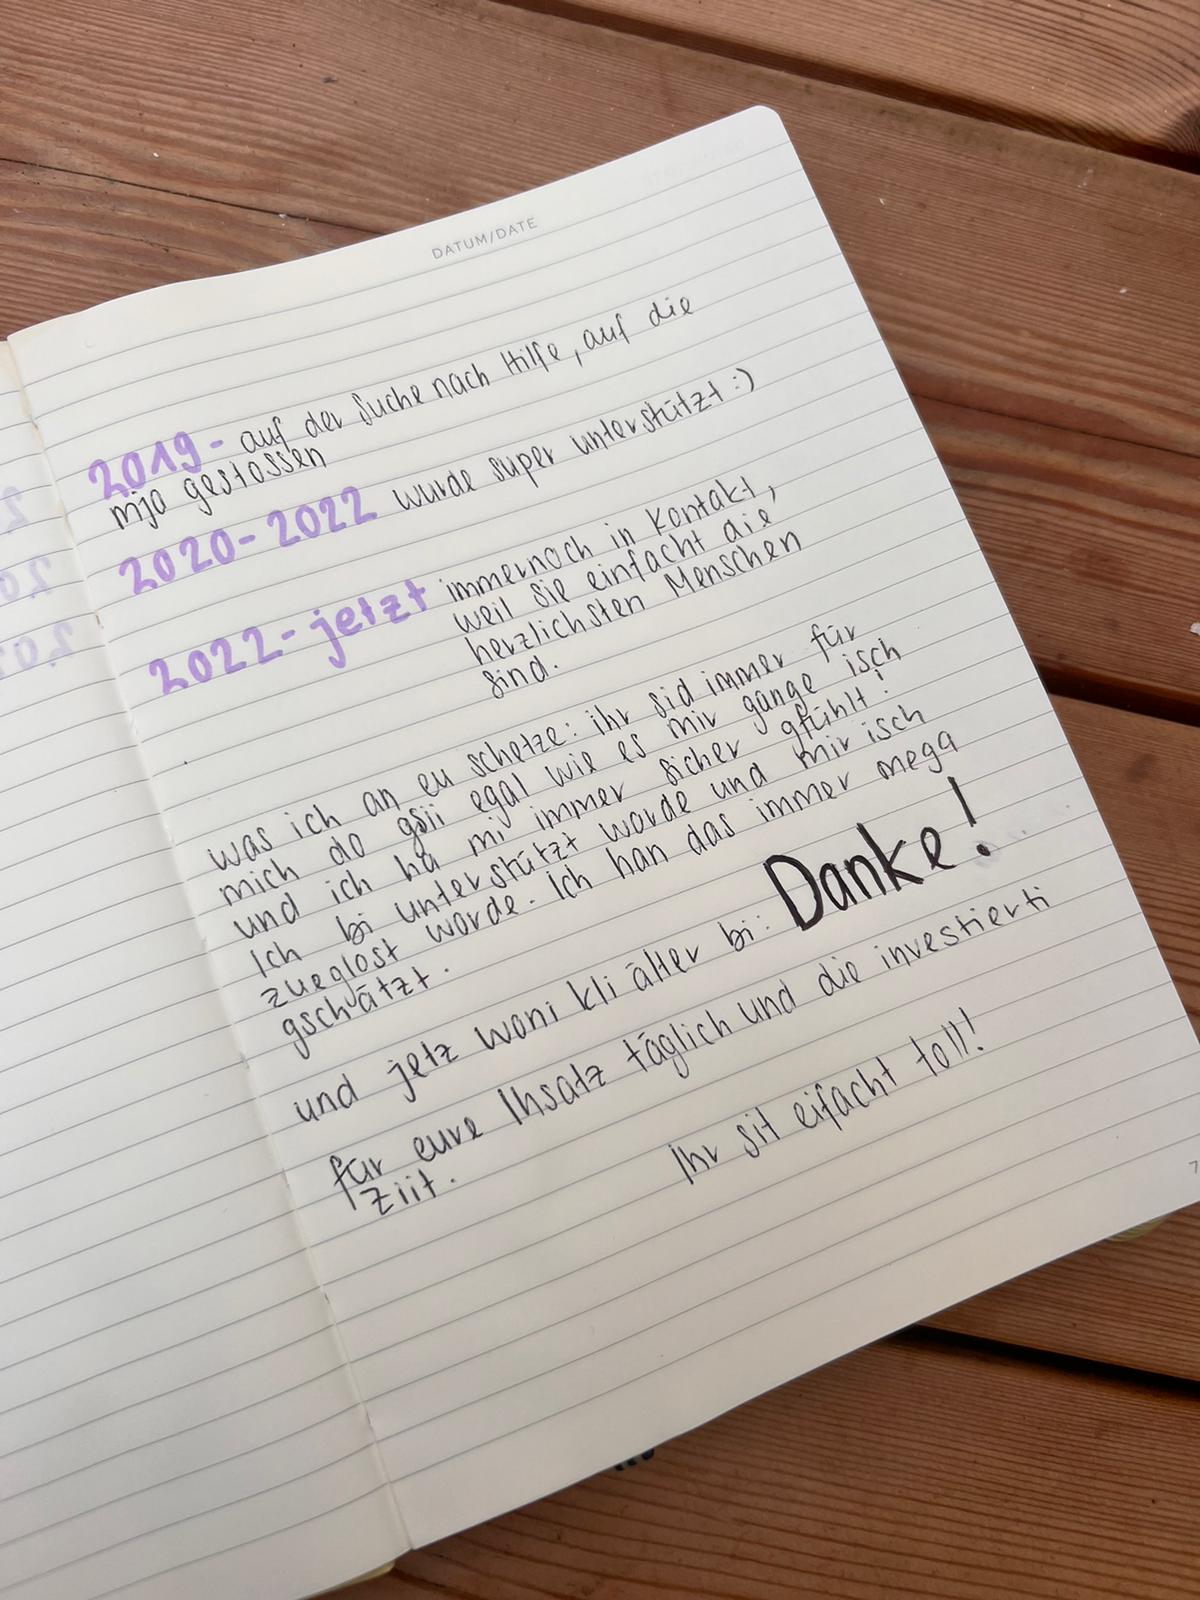 DATUM/DATE
2019 - auf der Suche nach Hilfe, auf die
mja gestossen
2020-2022 wurde super unterstützt :)
2022-jetzt immernoch in Kontakt,
weil sie einfacht die
herzlichsten Menschen
sind.
was ich an eu schetze: ihr sid immer für
mich do gsii egal wie es mir gange isch
und ich ha mi immer sicher gfühlt!
Ich bi unterstützt worde und mir isch
zueglost worde. Ich han das immer mega
gschätzt.
und jetz woni kli älter bi: Danke!
für eure Ihsatz täglich und die investierti
Ziit.
Ihr sit eifacht toll!
7